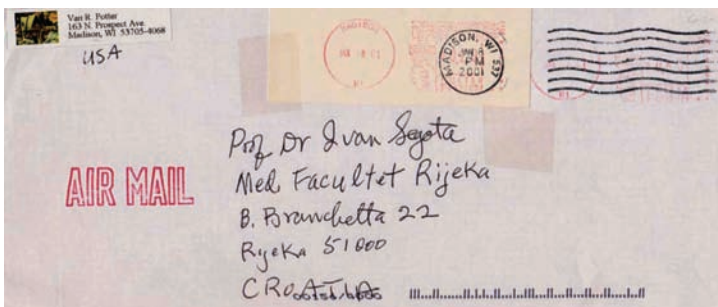 Van R. Potter
163 N. Prospect Ave.
Madison, WI 53705-4068
USA
MADISON, WI 537
PM
2001
AIR MAIL
Prof Dr Ivan Segota
Med Facultet Rijeka
B. Branchetta 22
Rijeka 51000
CROATIA